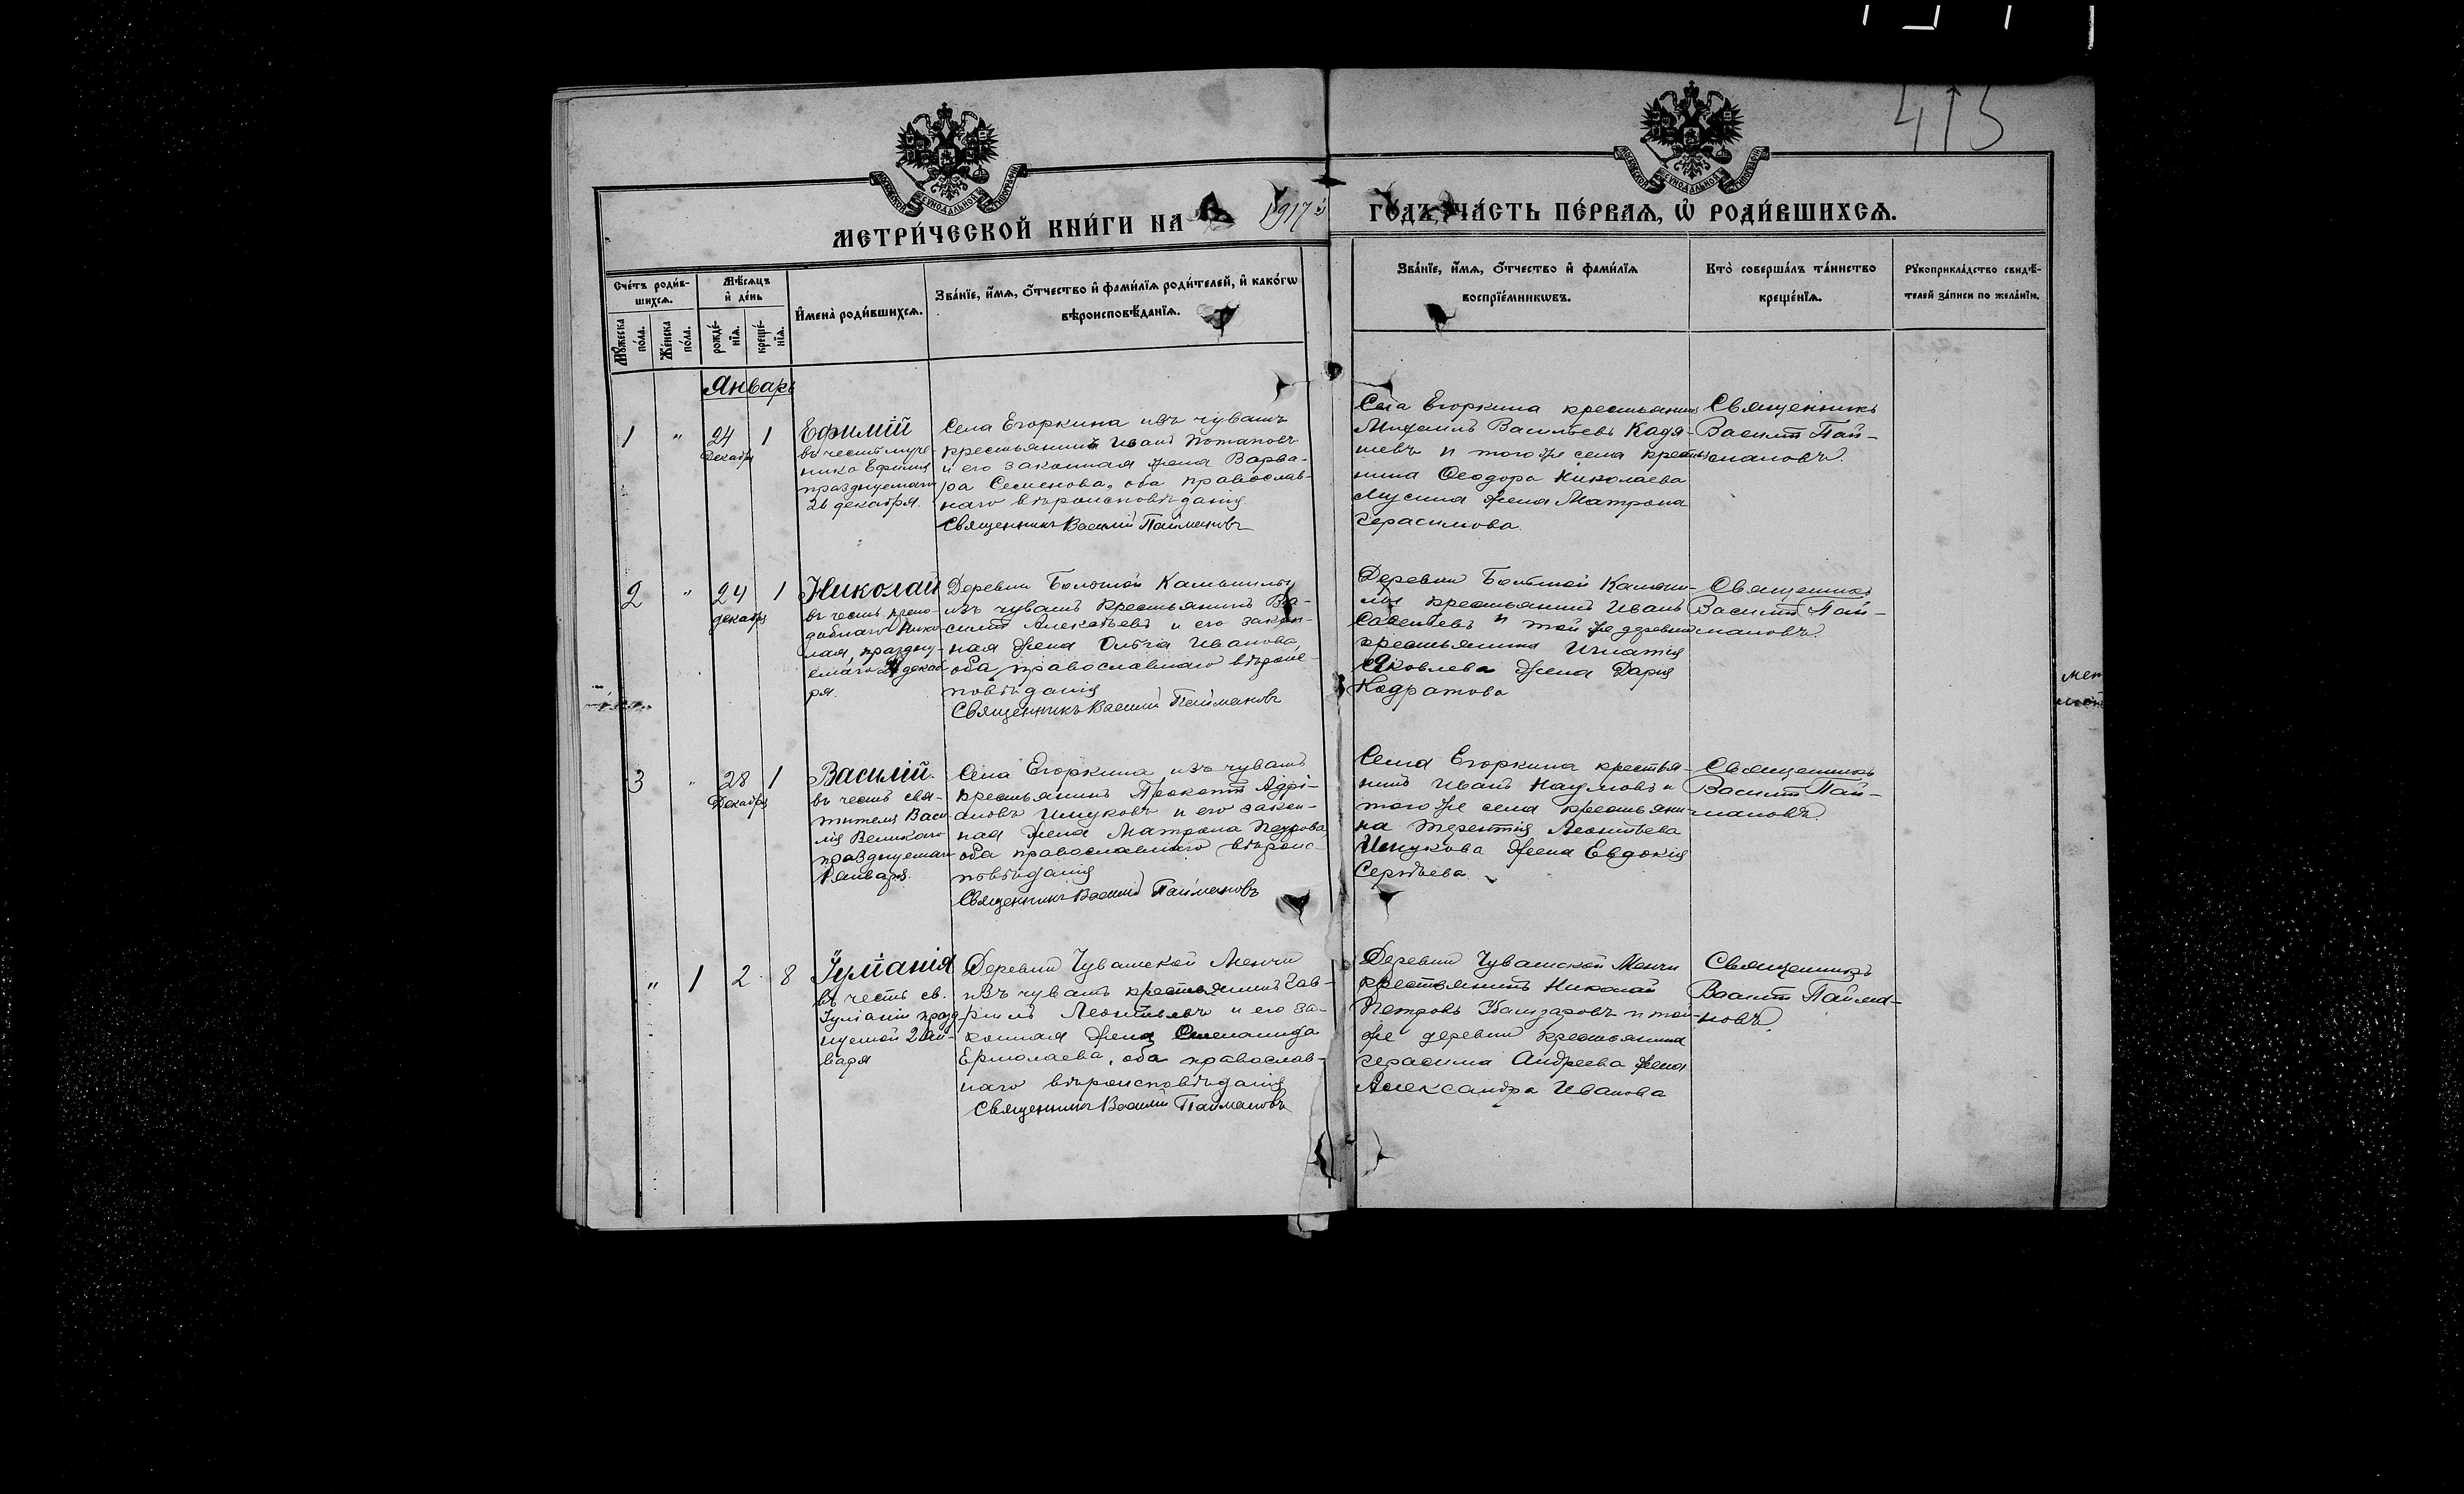 415
МЕТРИ́ЧЕСКОЙ КНИ́ГИ НА 1917 й
ГО́ДЪ ЧА́СТЬ ПЕ́РВАѦ, Ѽ РОДИ́ВШИХСѦ.
Сче́тъ роди́в-
шихсѧ.
Мѣ́сѧцъ
и҆ де́нь
И҆мена̀ роди́вшихсѧ.
Зва́нїе, и҆́мѧ, ѻ҆́тчество и҆ фами́лїѧ роди́телей, и҆ како́гѡ
вѣроисповѣ́данїѧ.
Зва́нїе, и҆́мѧ, ѻ҆́тчество и҆ фами́лїѧ
воспрїе́мникѡвъ.
Кто̀ соверша́лъ та́инство
креще́нїѧ.
Рꙋкоприкла́дство свидѣ́-
телей за́писи по жела́нїю.
Мꙋ́жеска
по́ла.
Же́нска
по́ла.
рожде́-
нїѧ.
креще́-
нїѧ.
Январь
1 " 24 1
Декабря
Ефимій
въ честь муче-
ника Ефимія
празднуемаго
26 декабря.
Села Егоркина изъ чувашъ
крестьянинъ Иванъ Потаповъ
и его законная жена Варва-
ра Семенова, оба православ-
наго вѣроисповѣданія
Священникъ Василій Паймановъ
Села Егоркина крестьянинъ
Михаилъ Васильевъ Кадя-
шевъ и того же села крестья
нина Ѳеодора Николаева
Мусина жена Матрона
Герасимова.
Священникъ
Василій Пай-
мановъ.
2 " 24 1
декабря
Николай
въ честь препо-
добнаго Нико-
лая, праздну-
емаго 24 декаб
ря.
Деревни Большой Камышлы
изъ чувашъ крестьянинъ Ва-
силій Алексѣевъ и его закон-
ная жена Ольга Иванова,
оба православнаго вѣроис-
повѣданія
Священникъ Василій Паймановъ
Деревни Большой Камыш-
лы крестьянинъ Иванъ
Савельевъ и той же деревни
крестьянина Игнатія
Яковлева жена Дарія
Кодратова
Священникъ
Василій Пай-
мановъ.
3 " 28 1
Декабря
Василій.
въ честь свя-
тителя Васи
лія Великаго
празднуемаго
1 января.
Села Егоркина изъ чувашъ
крестьянинъ Прокопій Адрі-
ановъ Ишуковъ и его закон-
ная жена Матрона Петрова,
оба православнаго вѣроис-
повѣданія
Священникъ Василій Паймановъ
Села Егоркина крестья-
нинъ Иванъ Наумовъ и
того же села крестьяни-
на Терентія Леонтьева
Ишукова жена Евдокія
Сергѣева.
Священникъ
Василій Пай-
мановъ
" 1 2 8
Іуліанія
въ честь св.
Іуліаніи празд
нуемой 2 Ян-
варя
Деревни Чувашской Менчи
изъ чувашъ крестьянинъ Гав-
ріилъ Леонтьевъ и его за-
конная жена Степанида
Ермолаева, оба православ-
наго вѣроисповѣданія
Священникъ Василій Паймановъ
Деревни Чувашской Менчи
крестьянинъ Николай
Петровъ и той
же деревни крестьянина
Герасима Андреева жена
Александра Иванова
Священникъ
Василій Пайма-
новъ.